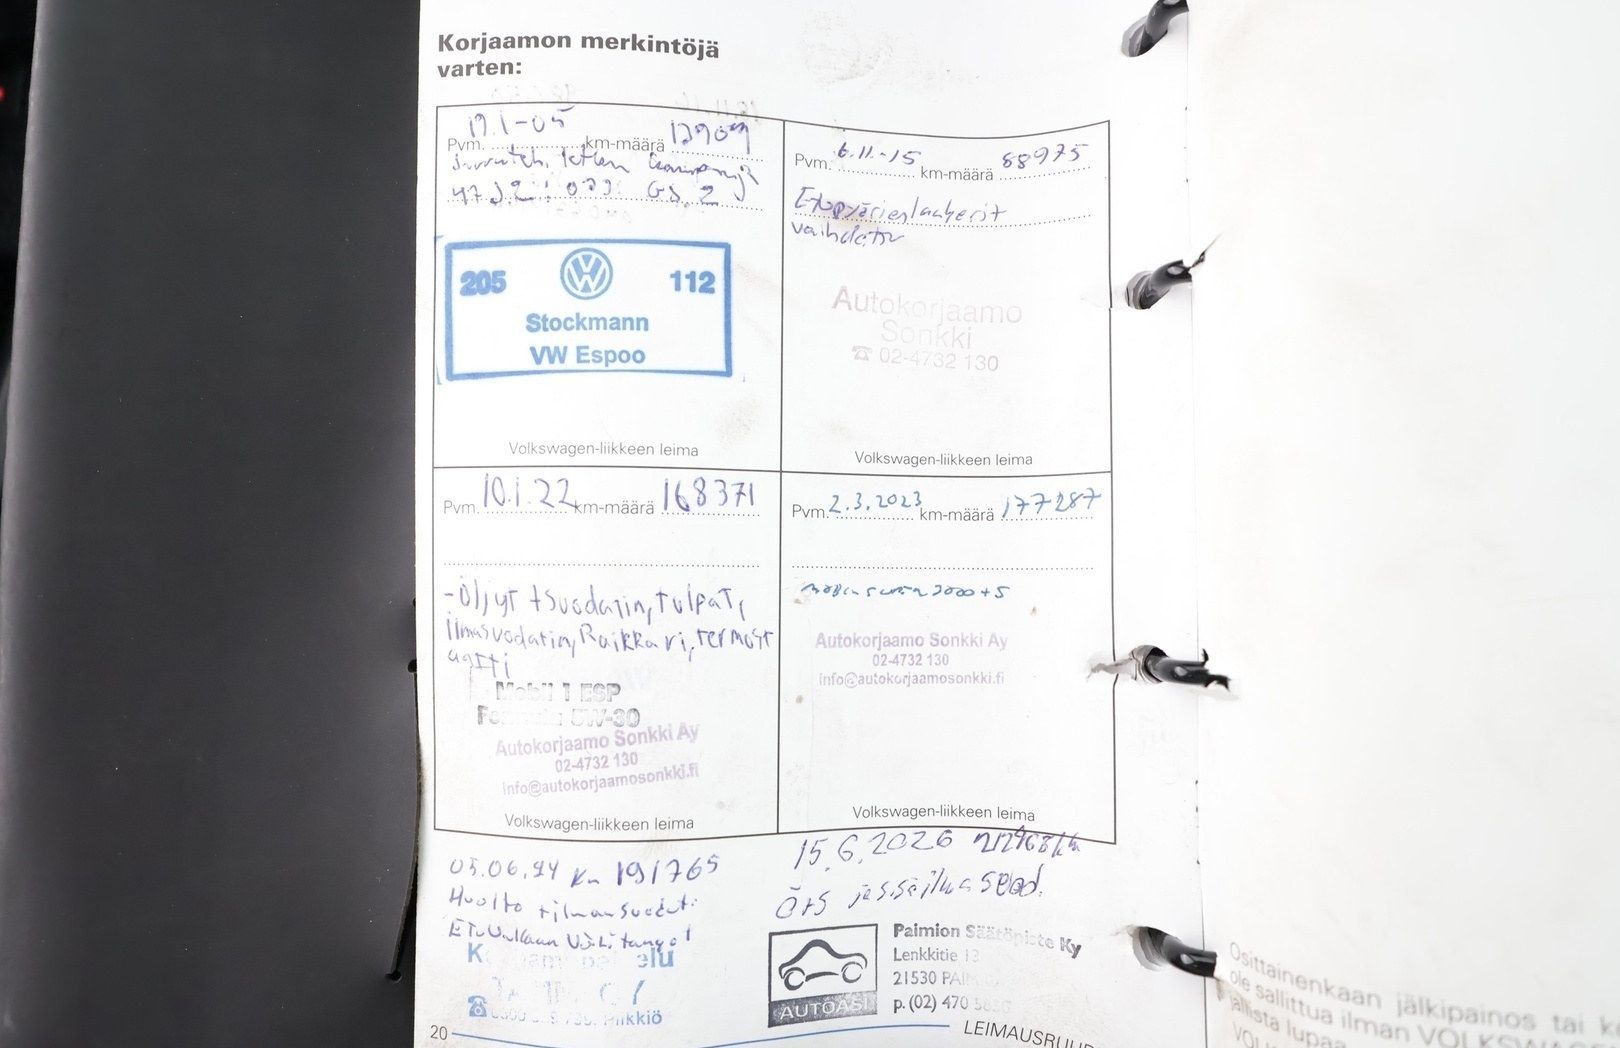 Korjaamon merkintöjä
varten:
Pvm. 19.1-05 km-määrä 13909
GS. 2
205 112
Stockmann
VW Espoo
Volkswagen-liikkeen leima
Pvm. 6.11.-15 km-määrä 88975
Etupyörienlaakerit
vaihdettu
Autokorjaamo
Sonkki
☎ 02-4732 130
Volkswagen-liikkeen leima
Pvm. 10.1.22 km-määrä 168371
-Öljyt +suodatin, tulpat,
ilmasuodatin, Raikkari, termost
aatti
Mobil 1 ESP
Formula 5W-30
Autokorjaamo Sonkki Ay
02-4732 130
info@autokorjaamosonkki.fi
Volkswagen-liikkeen leima
Pvm. 2.3.2023 km-määrä 177287
3000 + S
Autokorjaamo Sonkki Ay
02-4732 130
info@autokorjaamosonkki.fi
Volkswagen-liikkeen leima
05.06.24 km 191765
Huolto + ilmansuodat.
15.6.2026
Ö+S ja sisäilma suod.
Piikkiö
AUTOASI
Paimion Säätöpiste Ky
Lenkkitie 13
21530
p. (02) 470
20
LEIMAUSRUU
Osittainenkaan jälkipainos tai
ole sallittua ilman VOLKSWAGEN
lupaa